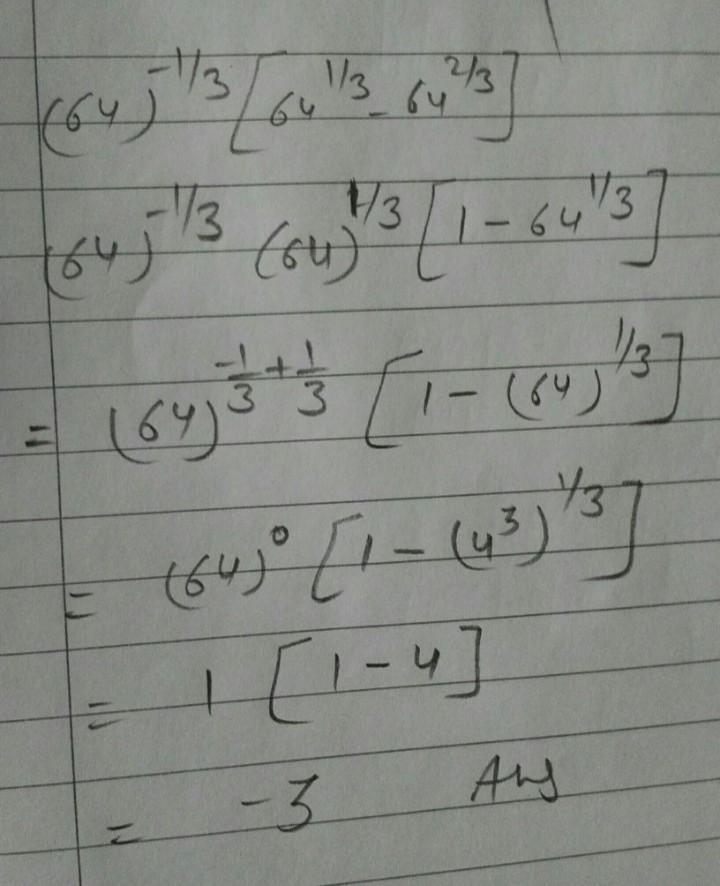 (64)^{-1/3} [64^{1/3} - 64^{2/3}]
(64)^{-1/3} (64)^{1/3} [1 - 64^{1/3}]
= (64)^{-\frac{1}{3} + \frac{1}{3}} [1 - (64)^{1/3}]
= (64)^0 [1 - (4^3)^{1/3}]
= 1 [1 - 4]
= -3 Ans